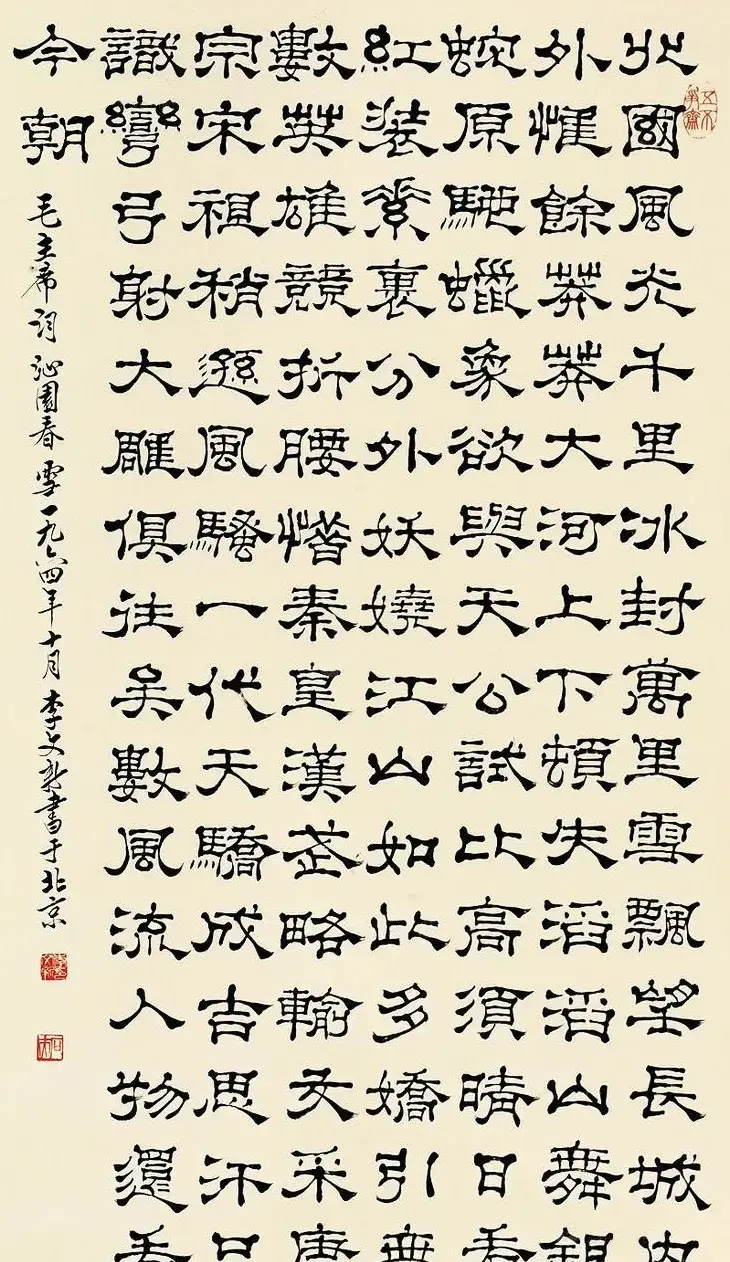 北國風光千里冰封萬里雪飄望長城内
外惟餘莽莽大河上下頓失滔滔山舞銀
蛇原馳蠟象欲與天公試比高須晴日看
紅裝素裹分外妖嬈江山如此多嬌引無
數英雄競折腰惜秦皇漢武略輸文采唐
宗宋祖稍遜風騷一代天驕成吉思汗只
識彎弓射大雕俱往矣數風流人物還看
今朝
毛主席詞沁園春雪一九八四年十月李文新書于北京